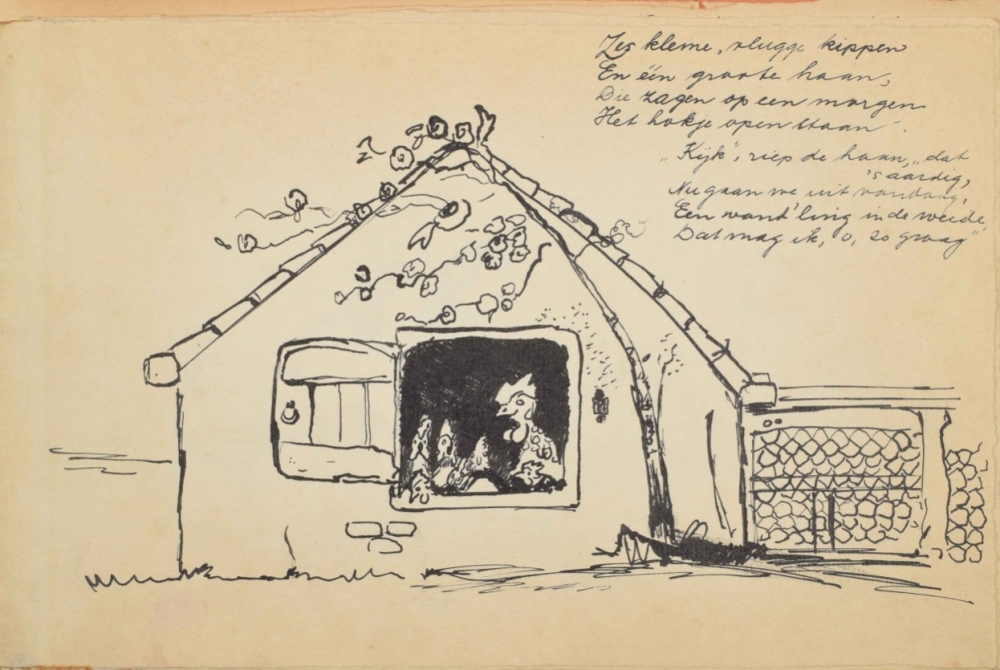 Zes kleine, vlugge kippen
En één groote haan,
Die zagen op een morgen
Het hokje open staan.
„Kijk", riep de haan, „dat
's aardig,
Nu gaan we uit vandaag,
Een wand'ling in de weide,
Dat mag ik, o, zo graag"